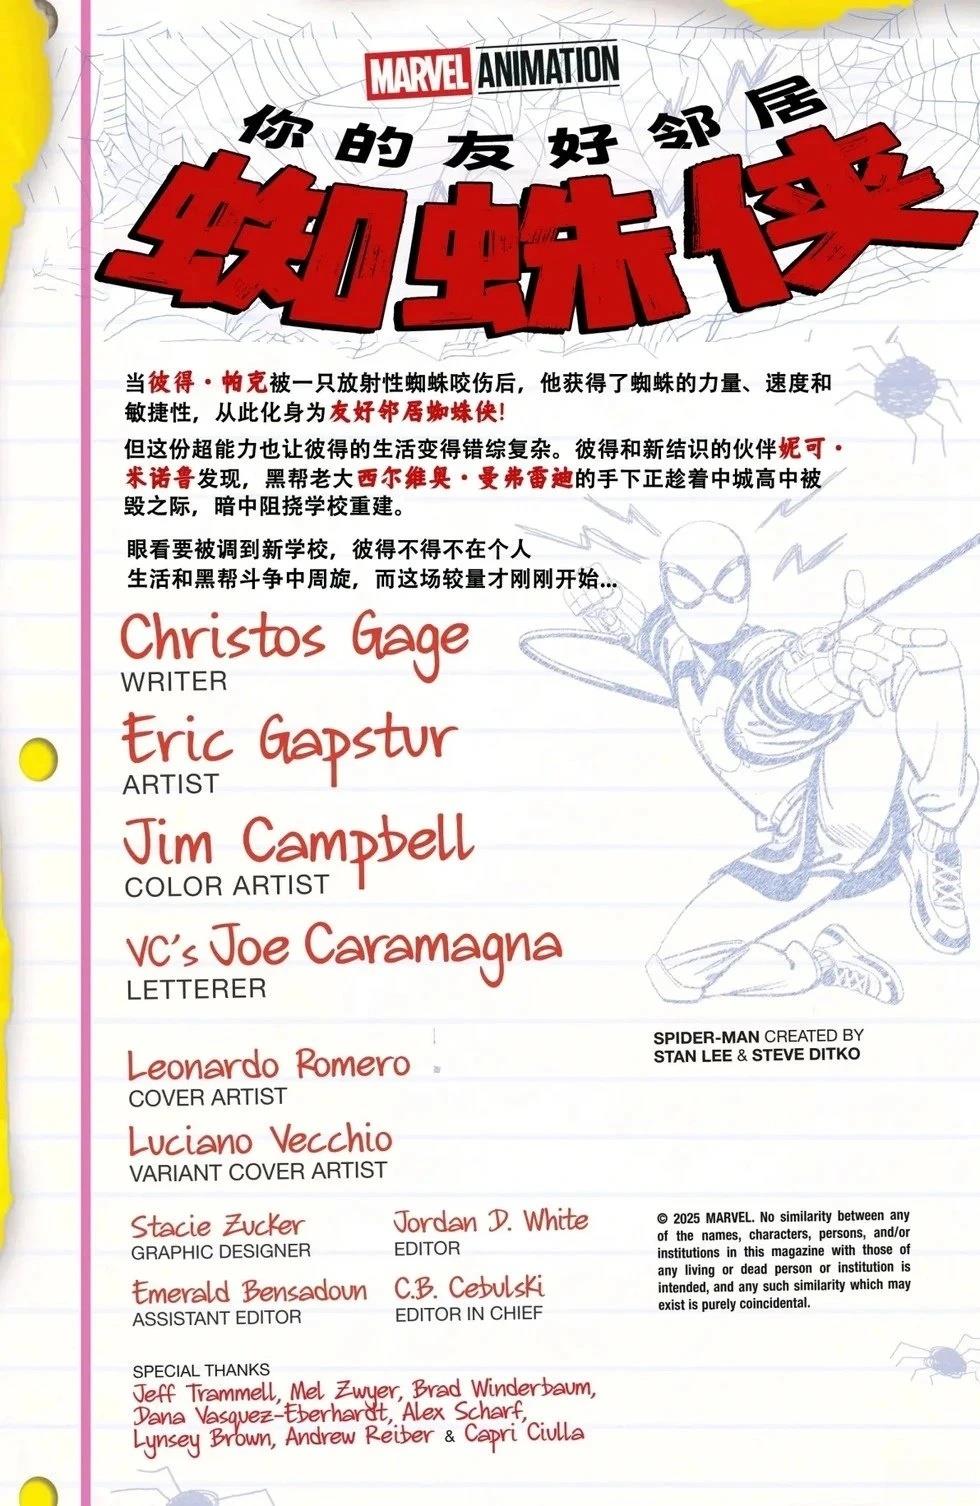 MARVEL ANIMATION
你的友好邻居
蜘蛛侠
当彼得·帕克被一只放射性蜘蛛咬伤后，他获得了蜘蛛的力量、速度和
敏捷性，从此化身为友好邻居蜘蛛侠!
但这份超能力也让彼得的生活变得错综复杂。彼得和新结识的伙伴妮可·
米诺鲁发现，黑帮老大西尔维奥·曼弗雷迪的手下正趁着中城高中被
毁之际，暗中阻挠学校重建。
眼看要被调到新学校，彼得不得不在个人
生活和黑帮斗争中周旋，而这场较量才刚刚开始...
Christos Gage
WRITER
Eric Gapstur
ARTIST
Jim Campbell
COLOR ARTIST
VC's Joe Caramagna
LETTERER
SPIDER-MAN CREATED BY
STAN LEE & STEVE DITKO
Leonardo Romero
COVER ARTIST
Luciano Vecchio
VARIANT COVER ARTIST
Stacie Zucker
GRAPHIC DESIGNER
Jordan D. White
EDITOR
Emerald Bensadoun
ASSISTANT EDITOR
C.B. Cebulski
EDITOR IN CHIEF
© 2025 MARVEL. No similarity between any
of the names, characters, persons, and/or
institutions in this magazine with those of
any living or dead person or institution is
intended, and any such similarity which may
exist is purely coincidental.
SPECIAL THANKS
Jeff Trammell, Mel Zwyer, Brad Winderbaum,
Dana Vasquez-Eberhardt, Alex Scharf,
Lynsey Brown, Andrew Reiber & Capri Ciulla